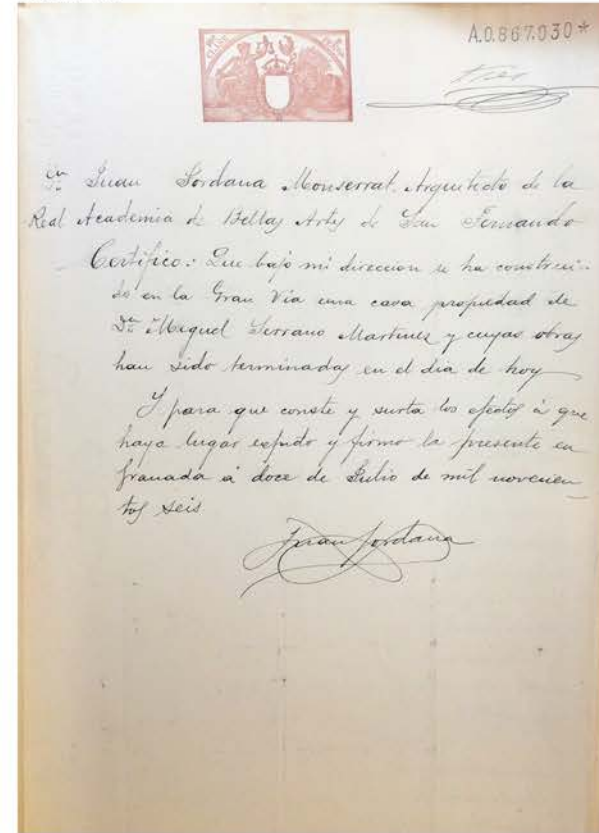 A.0.867.030*
Tres
Dn Juan Jordana Monserrat. Arquitecto de la
Real Academia de Bellas Artes de San Fernando
Certifico: Que bajo mi direccion se ha construi-
do en la Gran Via una casa propiedad de
Dn Miguel Serrano Martinez y cuyas obras
han sido terminadas en el dia de hoy
Y para que conste y surta los efectos à que
haya lugar espido y firmo la presente en
Granada à doce de Julio de mil novecien
tos seis
Juan Jordana